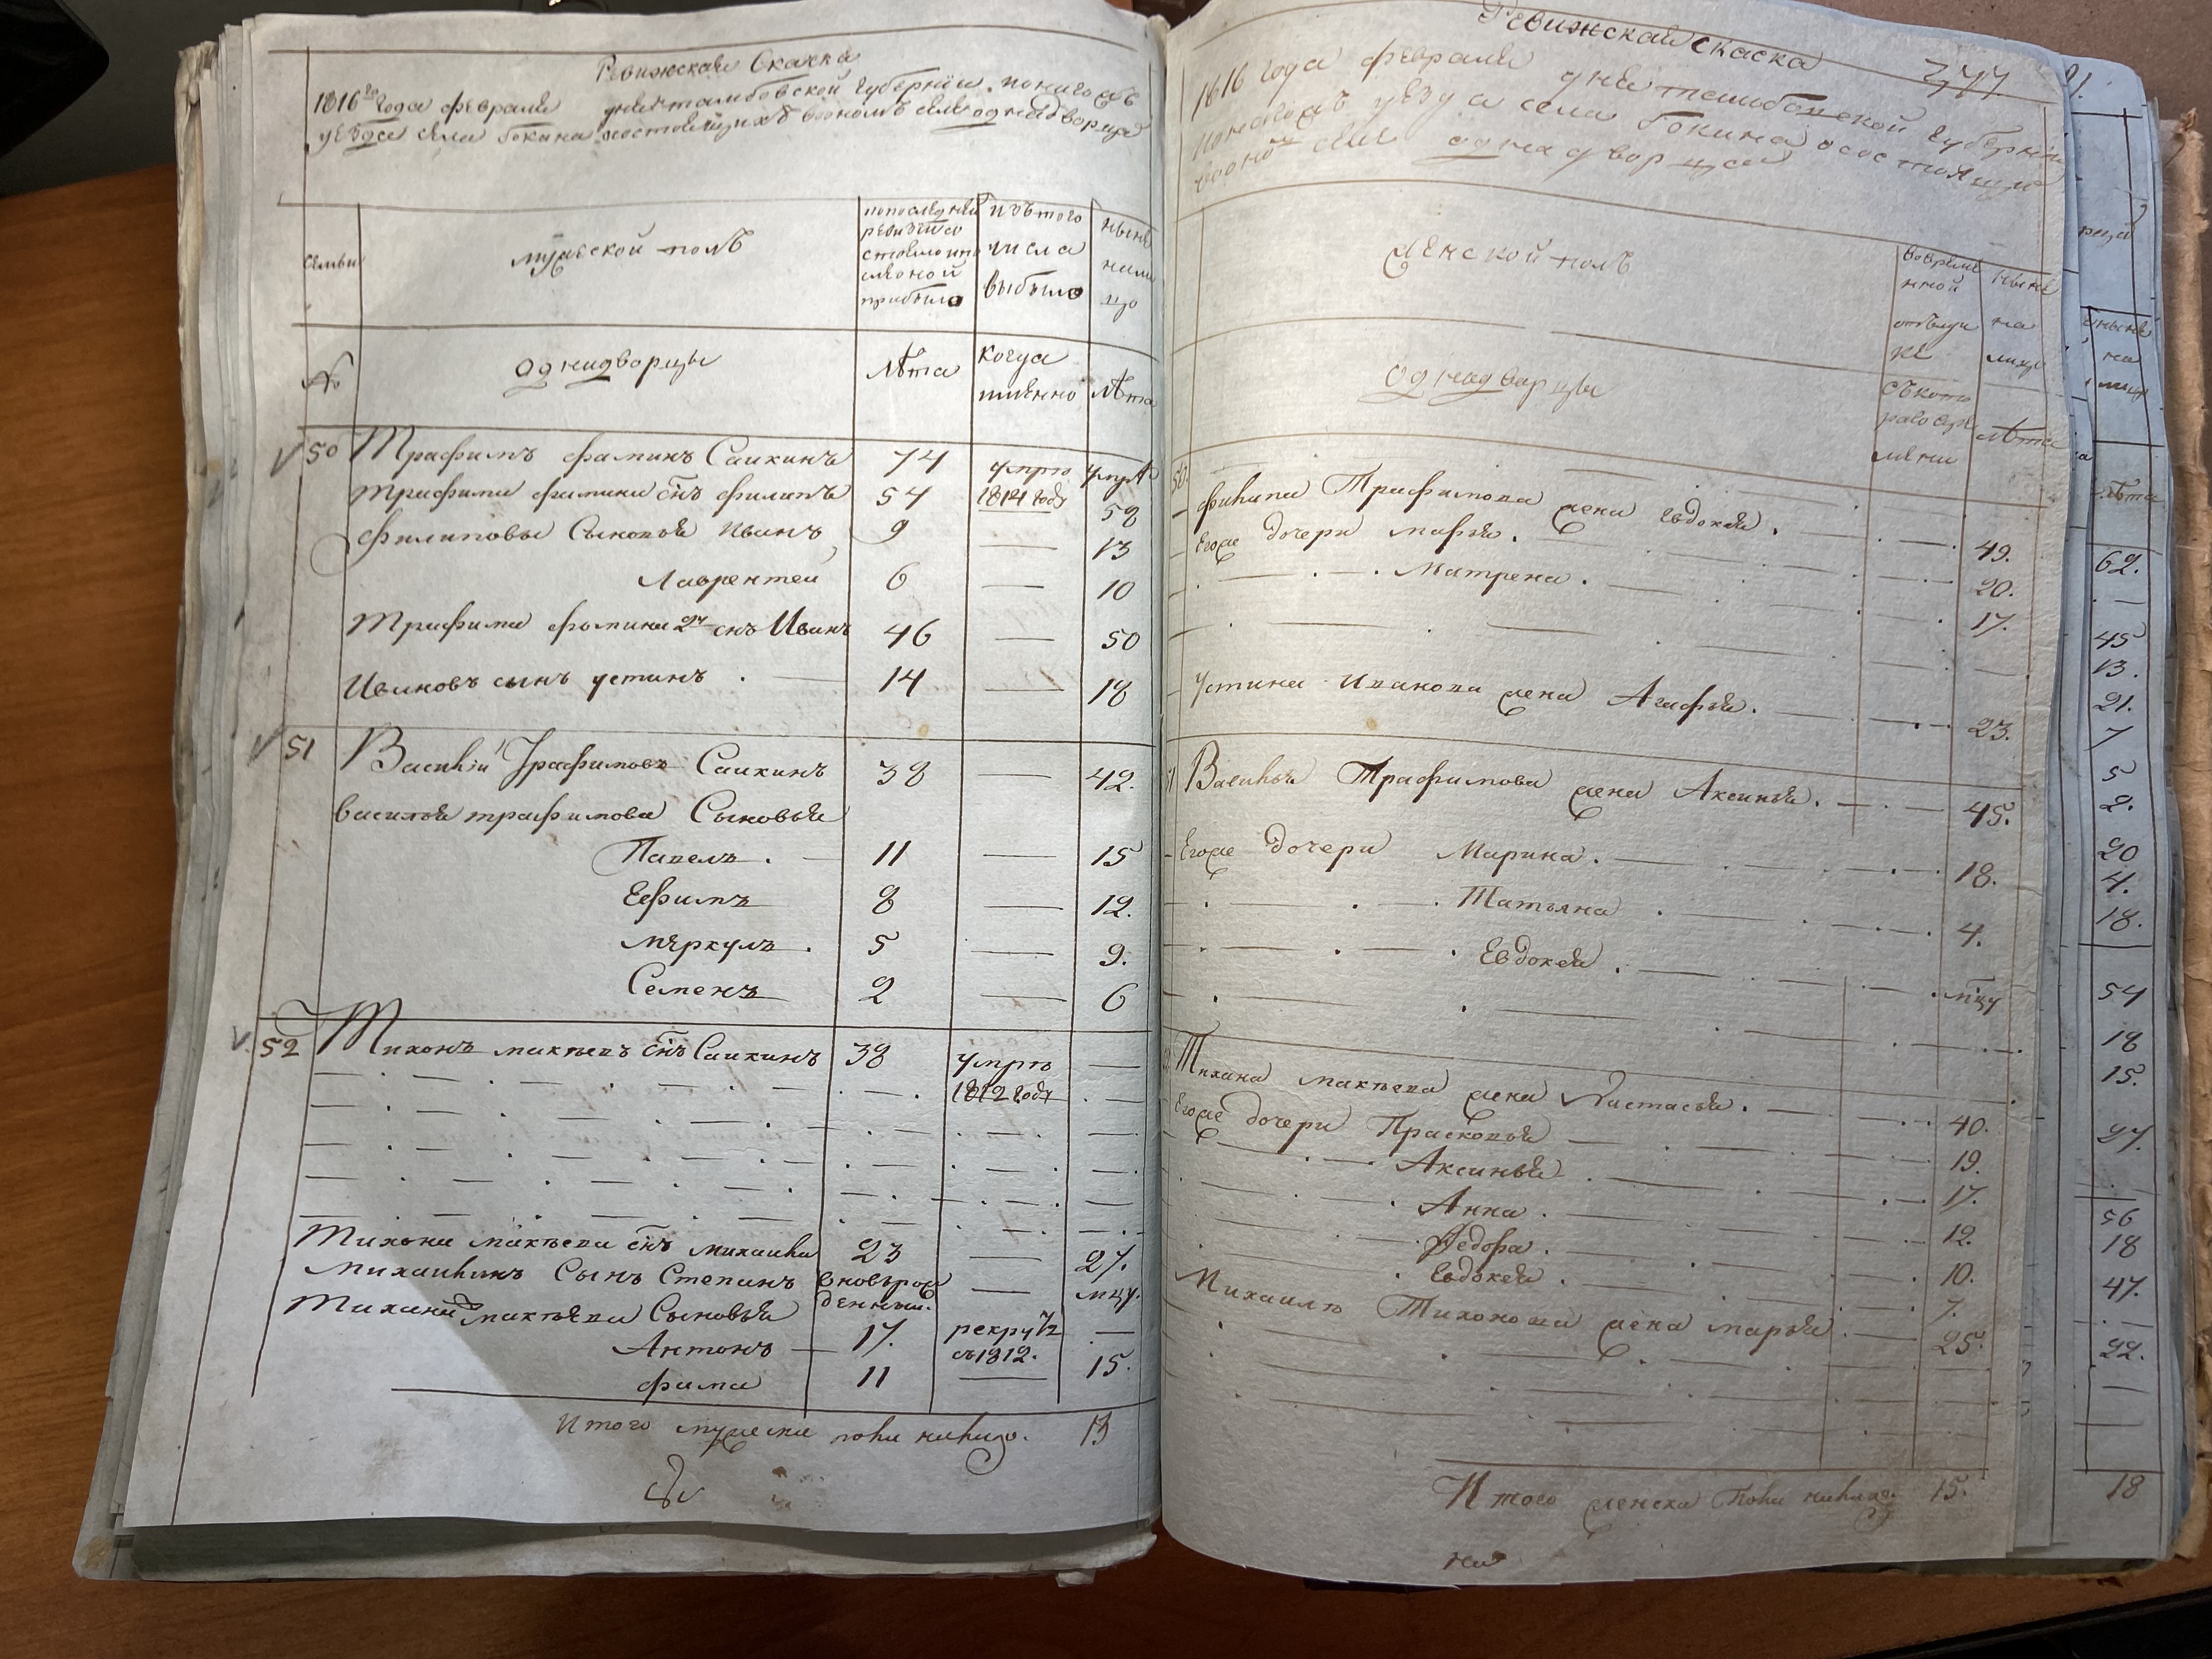 Ревижская Скаска
1816го года февраля дня тамбовской губернии
уезда села бокина состоящихъ воономъ селе однадворца
семьи
мужеской полъ
попоследней
ревизии со
стояло и по
сле оной
прибыло
изътого
числа
выбыло
ныне
нали
цо
№
Однидворцы
Лѣта
когда
имянно
Лѣта
50 Трафимъ фаминъ Саикинъ 74 умре умре
1814 году
Трафима фамина снъ филипъ 54 58
Филиповы Сыновья Иванъ 9 — 13
Лаврентей 6 — 10
Трафима фомина 2й снъ Иванъ 46 — 50
Ивановъ сынъ устинъ . — 14 — 18
51 Василій Трафимовъ Саикинъ 38 — 42.
василья трафимова Сыновья
Павелъ . — 11 — 15
Ефимъ 8 — 12.
меркулъ . 5 — 9.
Семенъ 2 — 6
52 Тихонъ макѣевъ снъ Саикинъ 38 умре —
1812 году
Тихона макѣева снъ михаила 23 — 27.
михаилинъ Сынъ Степанъ вновьрож
денный. — мцу.
Тихона макѣева Сыновья
Антонъ — 17. рекруты —
съ1812.
фама 11 — 15.
Итого мужеска пола налицо. 13
Ревижская скаска
277
1816 года февраля дня тамбовской губернии
уезда села бокина состоящия
воономъ селе однадворцы
женской полъ
вовреме
нной
отълучке
съкото
раго вре
мени
ныне
на
лицо
лѣта
однадворцы
50. филипа Трафимова жена Евдокея . 49.
Егоже дочери марья . 20.
Матрена . 17.
Устина Иванова жена Агафья . 23.
Василья Трафимова жена Аксинья . 45.
Егоже дочери Марина . 18.
Татьяна . 4.
Евдокея . мцу
Тихана макѣева жена Настасья . 40.
Егоже дочери Прасковья 19.
Аксинья . 17.
Анна . 12.
Федора . 10.
Евдокея . 7.
Михаила Тихонова жена марья . 25.
Итого женска пола налицо 15.
ныне
на
лицо
лѣта
62.
45
13.
21.
7
5
2.
20
4.
18.
54
18
15.
27.
56
18
47.
22.
18